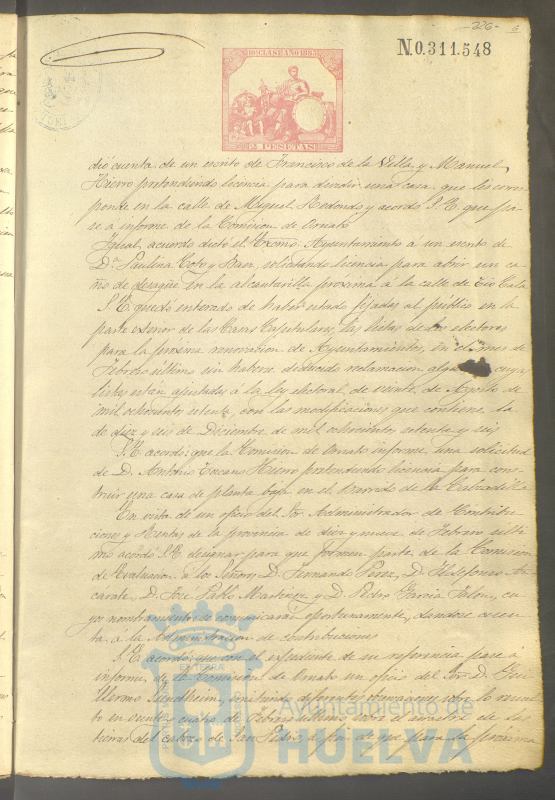 226
N.0.311.548
10ª CLASE AÑO 1885
2 PESETAS
dió cuenta de un escrito de Francisco de la Villa y Manuel
Hierro pretendiendo licencia para dividir una casa que les corres
ponde en la calle de Miguel Redondo y acordó S. E. que pa
se a informe de la Comision de Ornato
Igual acuerdo dictó el Excmo. Ayuntamiento a un escrito de
D.ª Paulina Coto y Baez, solicitando licencia para abrir un ca
ño de desagüe en la alcantarilla próxima a la calle de Tío Cala
S. E. quedó enterado de haber estado fijadas al público en la
parte exterior de las Casas Capitulares, las listas de electores
para la proxima renovacion de Ayuntamientos, en el mes de
Febrero último sin haberse deducido reclamacion cuyas
listas están ajustadas á la ley electoral de veinte de Agosto de
mil ochocientos setenta, con las modificaciones que contiene la
de diez y seis de Diciembre de mil ochocientos setenta y seis
S. E. acordó: que la Comision de Ornato informe una solicitud
de D. Antonio Hierro pretendiendo licencia para cons
truir una casa de planta baja en el Barrido de la Calzadilla
En vista de un oficio del Sr. Administrador de Contribu
ciones y Rentas de la provincia de diez y nueve de Febrero últi
mo acordó S. E. designar para que formen parte de la Comision
de Evaluacion a los Señores D. Fernando Perez, D. Ildefonso Az
carate, D. José Pablo Martinez y D. Pedro Garcia Jalon, cu
yos nombramientos se comunicarán oportunamente, dandose cuen
ta á la Administracion de contribuciones
S. E. acordó: que con el expediente de su referencia pase a
informe de la Comision de Ornato un oficio del Sor. D. Gui
llermo Sundheim, observaciones sobre lo resuel
to en veinte y cuatro de Febrero último, sobre el arrastre de las
tierras del cabezo de San Pedro á fin de que para la próxima
Ayuntamiento de
HUELVA